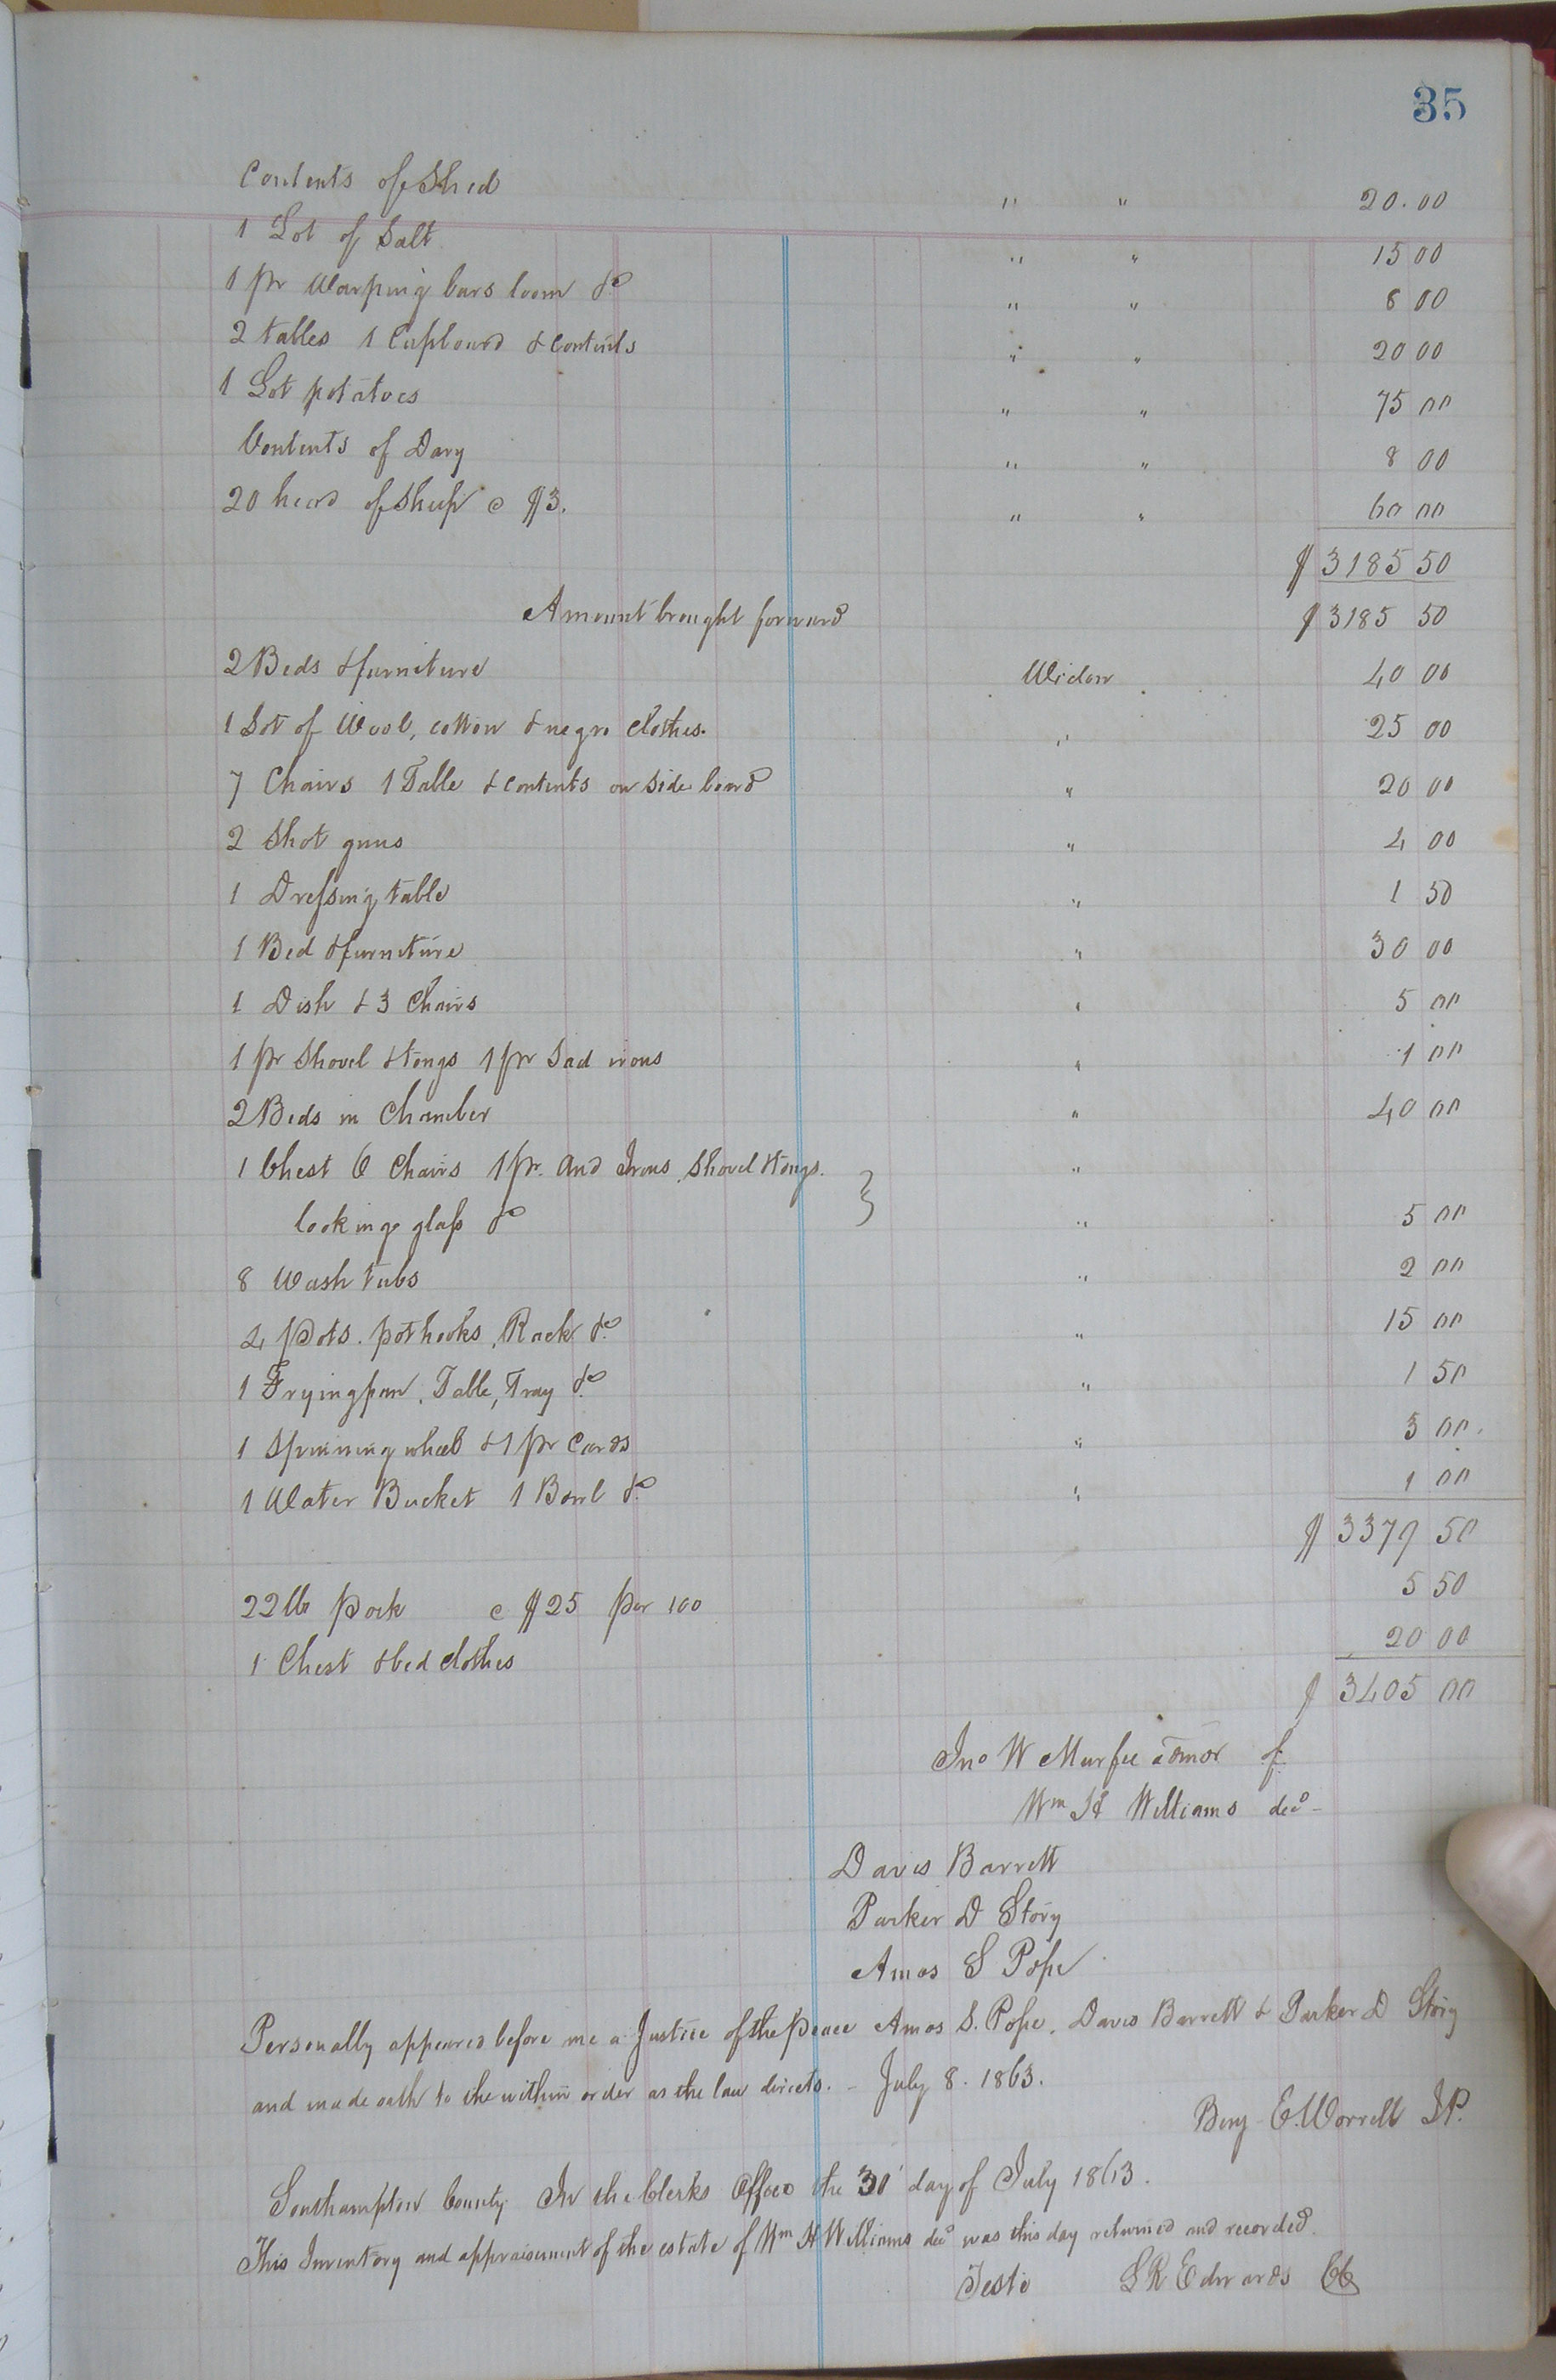 35
Contents of Shed " " 20.00
1 Lot of Salt " " 15 00
1 pr Warping bars loom &c " " 8 00
2 tables 1 Cupboard & contents " " 20 00
1 Lot potatoes " " 75 00
Contents of Dary " " 8 00
20 head of Sheep @ $3. " " 60 00
$ 3185 50
Amount brought forward $ 3185 50
2 Beds & furniture Widow 40 00
1 Lot of Wool, cotton & negro clothes. " 25 00
7 Chairs 1 Table & contents on side board " 20 00
2 Shot guns " 4 00
1 Dressing table " 1 50
1 Bed & furniture " 30 00
1 Dish & 3 Chairs " 5 00
1 pr Shovel & tongs 1 pr Sad irons " 1 00
2 Beds in Chamber " 40 00
1 Chest 6 Chairs 1 pr. And Irons, Shovel & tongs. "
looking glass &c " 5 00
8 Wash tubs " 2 00
4 Pots. pot hooks, Rack &c " 15 00
1 Fryingpan, Table, Tray &c " 1 50
1 Spinning wheel & 1 pr Cards " 3 00
1 Water Bucket 1 Bowl &c " 1 00
$ 3379 50
22 lb Pork @ $25 per 100 5 50
1 Chest & bed clothes 20 00
$ 3405 00
Jno W Murfee admor of
Wm H Williams decd
Davis Barrett
Parker D Story
Amos S Pope
Personally appeared before me a Justice of the Peace Amos S. Pope, Davis Barrett & Parker D Story
and made oath to the within order as the law directs. - July 8. 1863.
Benj E. Worrell J.P.
Southampton County In the Clerks Office the 30 day of July 1863.
This Inventory and appraisement of the estate of Wm H Williams decd was this day returned and recorded.
Teste L R Edwards CC